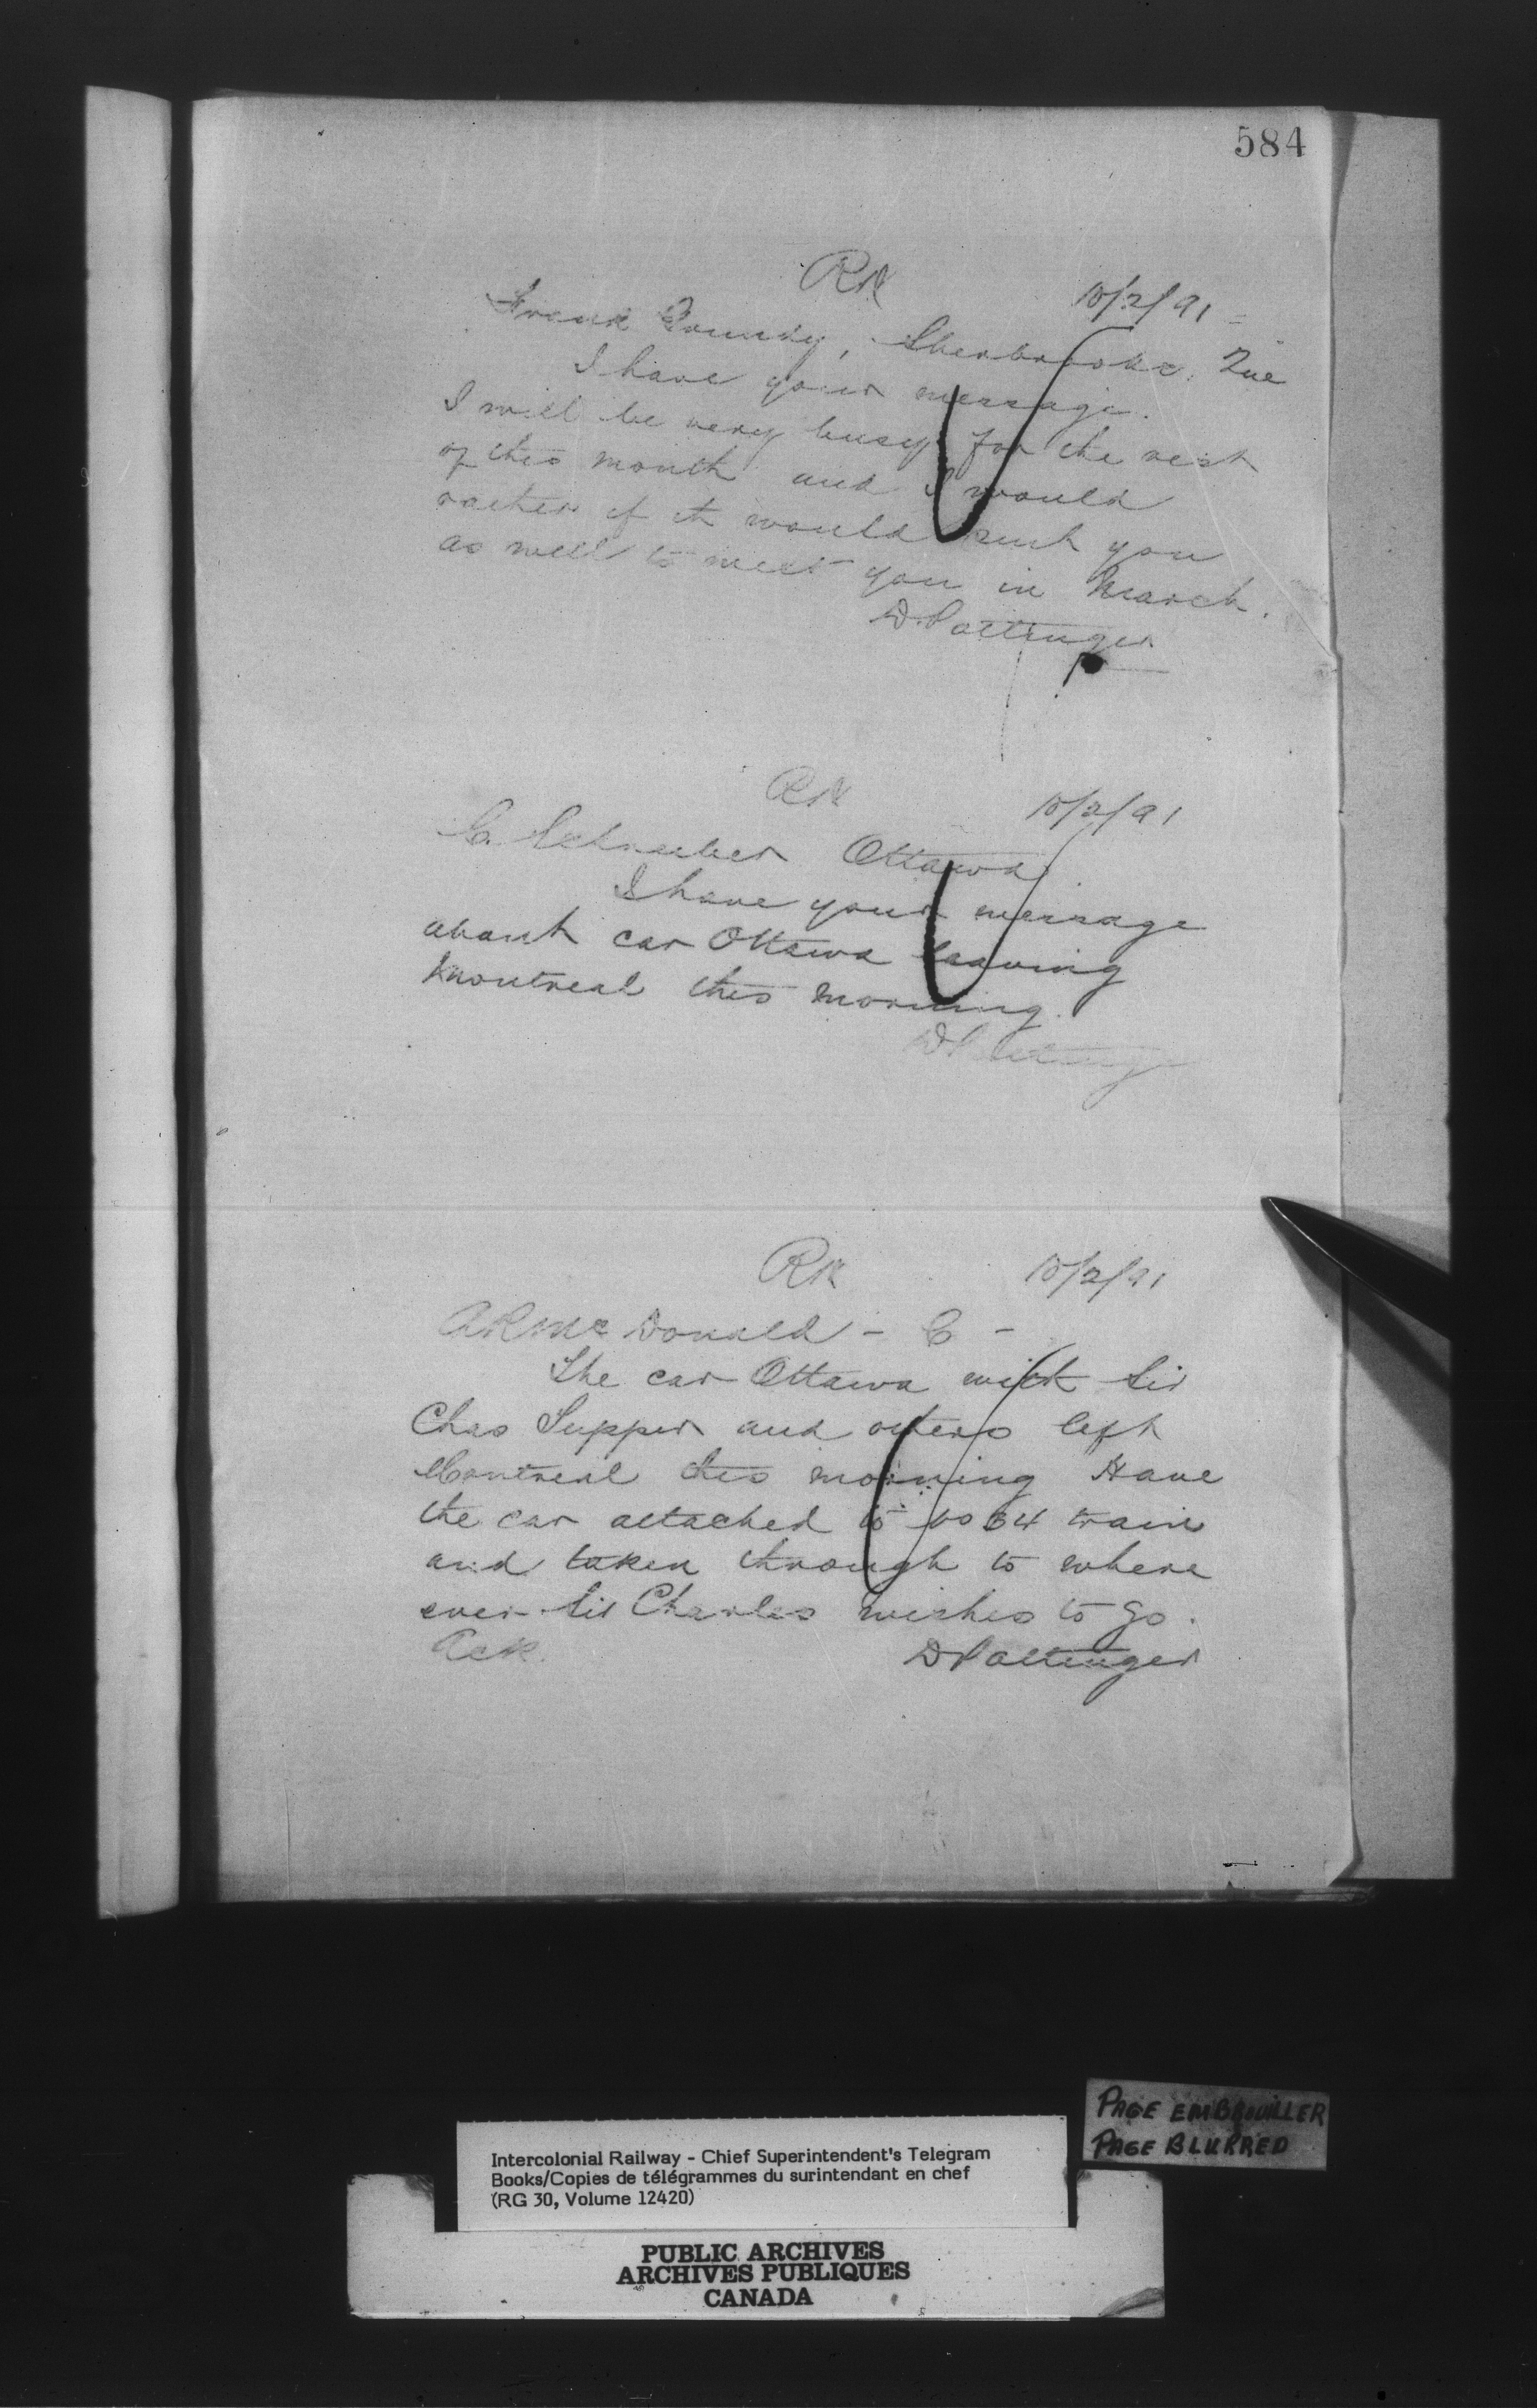 584
RK
10/2/91
Frank Grundy, Sherbrooke, Que
I have your message.
I will be very busy for the rest
of this month and I would
rather if it would suit you
as well to meet you in March.
D Pottinger
RK
10/2/91
C. Schreiber Ottawa
I have your message
about car Ottawa leaving
Montreal this morning.
D Pottinger
RK
10/2/91
AR McDonald - C -
The car Ottawa with Sir
Chas Tupper and others left
Montreal this morning Have
the car attached to no 34 train
and taken through to where
ever Sir Charles wishes to go.
Ack.
D Pottinger
PAGE EMBROUILLER
PAGE BLURRED
Intercolonial Railway - Chief Superintendent's Telegram
Books/Copies de télégrammes du surintendant en chef
(RG 30, Volume 12420)
PUBLIC ARCHIVES
ARCHIVES PUBLIQUES
CANADA